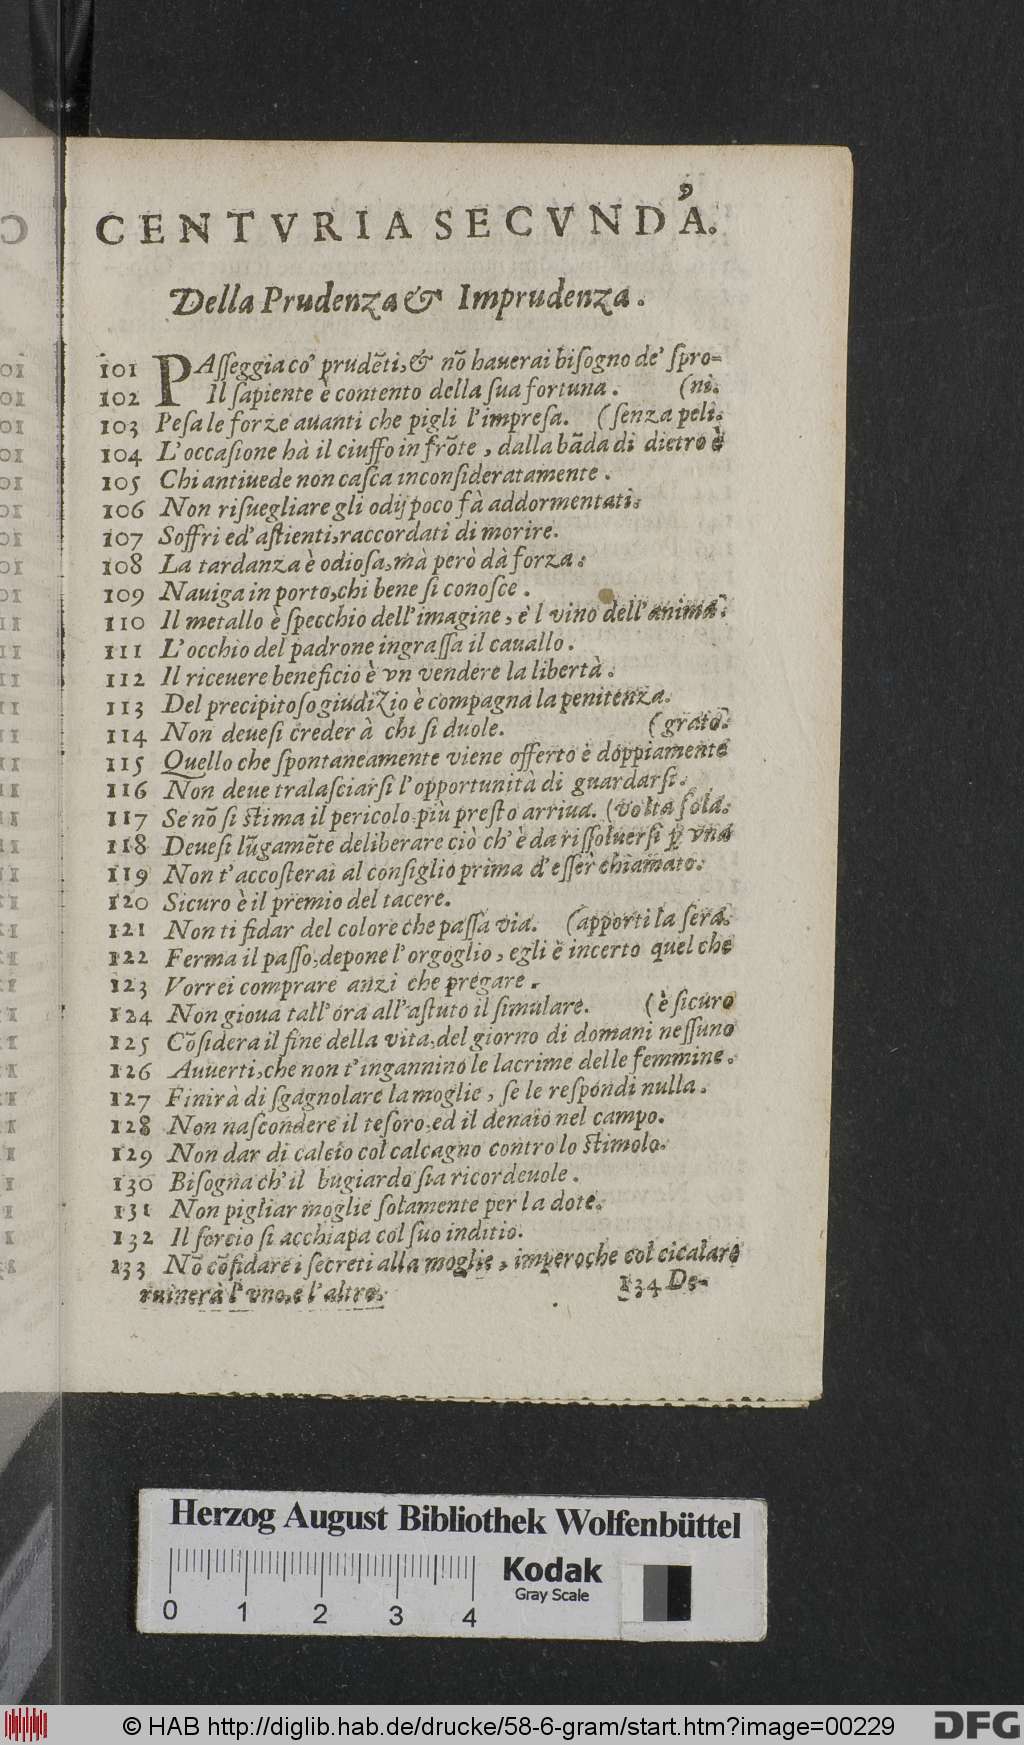 CENTVRIA SECVNDA.
Della Prudenza & Imprudenza.
101 PAſſeggia co' prudẽti, & nõ hauerai biſogno de' ſpro=
102 Il ſapiente è contento della ſua fortuna. (ni.
103 Peſa le forze auanti che pigli l'impreſa. (ſenza peli.
104 L'occaſione hà il ciuffo in frõte, dalla bãda di dietro è
105 Chi antiuede non caſca inconſideratamente.
106 Non riſuegliare gli odij poco fà addormentati.
107 Soffri ed' aſtienti, raccordati di morire.
108 La tardanza è odioſa, mà però dà forza.
109 Nauiga in porto, chi bene ſi conoſce.
110 Il metallo è ſpecchio dell'imagine, è l vino dell'anima.
111 L'occhio del padrone ingraſſa il cauallo.
112 Il riceuere beneficio è vn vendere la libertà.
113 Del precipitoso giudizio è compagna la penitenza.
114 Non deueſi creder à chi ſi duole. (grato.
115 Quello che ſpontaneamente viene offerto è doppiamente
116 Non deue tralaſciarſi l'opportunità di guardarſi.
117 Se nõ ſi ſtima il pericolo più preſto arriua. (volta ſola.
118 Deueſi lũgamẽte deliberare ciò ch'è da riſſoluerſi ꝑ vna
119 Non t'accoſterai al conſiglio prima d'eſſer chiamato.
120 Sicuro è il premio del tacere.
121 Non ti fidar del colore che paſſa via. (apporti la ſera.
122 Ferma il paſſo, depone l'orgoglio, egli è incerto quel che
123 Vorrei comprare anzi che pregare.
124 Non gioua tall'ora all'aſtuto il ſimulare. (è ſicuro
125 Cõſidera il fine della vita, del giorno di domani neſſuno
126 Auuerti, che non t'ingannino le lacrime delle femmine.
127 Finirà di ſgagnolare la moglie, ſe le reſpondi nulla.
128 Non naſcondere il teſoro, ed il denaio nel campo.
129 Non dar di calcio col calcagno contro lo ſtimolo.
130 Biſogna ch'il bugiardo ſia ricordeuole.
131 Non pigliar moglie ſolamente per la dote.
132 Il ſorcio ſi acchiapa col ſuo inditio.
133 Nõ cõfidare i ſecreti alla moglie, imperoche col cicalare
ruinerà l'vno, e l'altro.
134 De-
Herzog August Bibliothek Wolfenbüttel
Kodak
Gray Scale
0 1 2 3 4
© HAB http://diglib.hab.de/drucke/58-6-gram/start.htm?image=00229
DFG